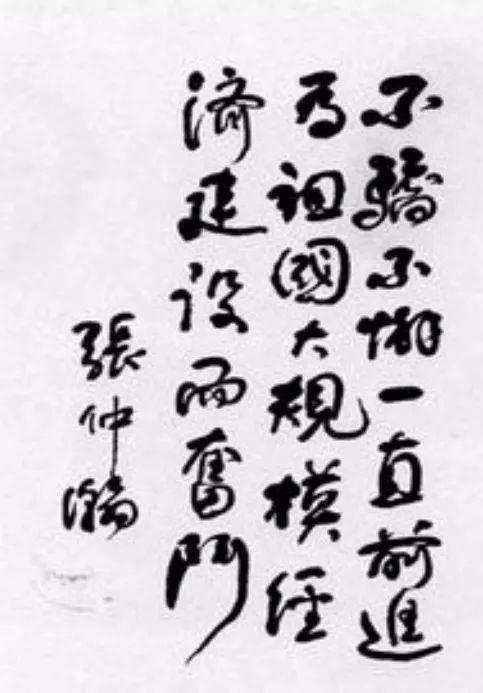 不驕不懈一直前進
为祖國大規模經
济建设而奮鬥
張仲瀚